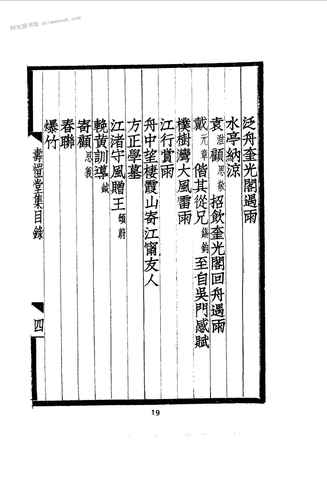 泛舟奎光閣遇雨
水亭納涼
袁淮顧思敬招飲奎光閣回舟遇雨
戴元章偕其從兄鑄鈞至自吳門感賦
樸樹灣大風雷雨
江行賞雨
舟中望棲霞山寄江甯友人
方正學墓
江渚守風贈王頓尉
輓黃訓導鉞
寄顧思義
春聯
爆竹
壽榿堂集目錄
四
19